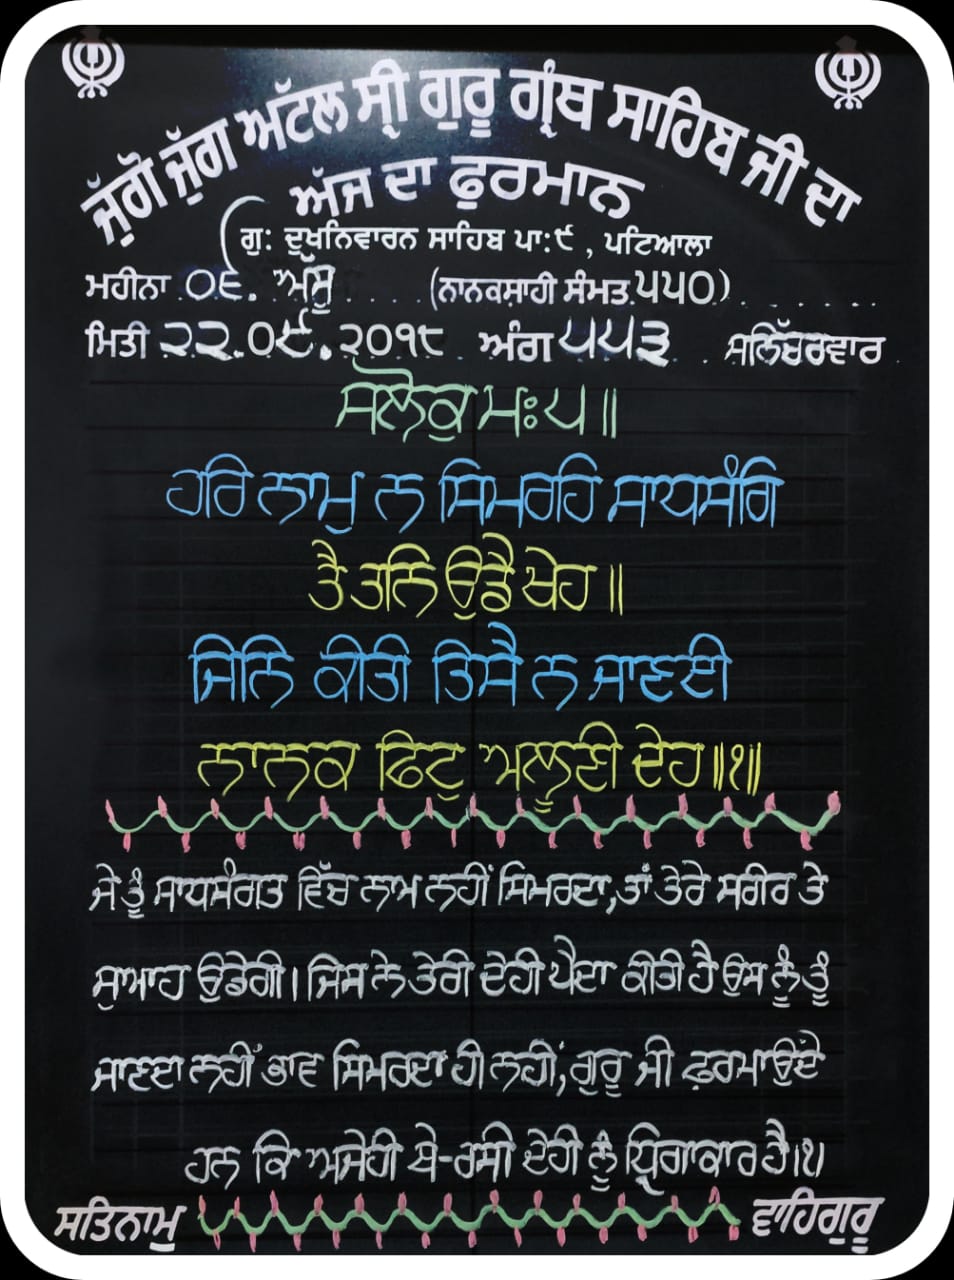 ਜੁੱਗੋ ਜੁੱਗ ਅੱਟਲ ਸ੍ਰੀ ਗੁਰੂ ਗ੍ਰੰਥ ਸਾਹਿਬ ਜੀ ਦਾ
ਅੱਜ ਦਾ ਫੁਰਮਾਨ
ਗੁ: ਦੁਖਨਿਵਾਰਨ ਸਾਹਿਬ ਪਾ:੯, ਪਟਿਆਲਾ
ਮਹੀਨਾ ੦੬. ਅੱਸੂ (ਨਾਨਕਸ਼ਾਹੀ ਸੰਮਤ ੫੫੦)
ਮਿਤੀ ੨੨.੦੯.੨੦੧੮ ਅੰਗ ੫੫੩ ਸ਼ਨਿੱਚਰਵਾਰ
ਸਲੋਕੁ ਮਃ ੫ ॥
ਹਰਿ ਨਾਮੁ ਨ ਸਿਮਰਹਿ ਸਾਧਸੰਗਿ
ਤੈ ਤਨਿ ਉਡੈ ਖੇਹ ॥
ਜਿਨਿ ਕੀਤੀ ਤਿਸੈ ਨ ਜਾਣਈ
ਨਾਨਕ ਫਿਟੁ ਅਲੂਣੀ ਦੇਹ ॥੧॥
ਜੇ ਤੂੰ ਸਾਧਸੰਗਤ ਵਿੱਚ ਨਾਮ ਨਹੀਂ ਸਿਮਰਦਾ, ਤਾਂ ਤੇਰੇ ਸਰੀਰ ਤੇ
ਸੁਆਹ ਉਡੇਗੀ। ਜਿਸ ਨੇ ਤੇਰੀ ਦੇਹੀ ਪੈਦਾ ਕੀਤੀ ਹੈ ਉਸ ਨੂੰ ਤੂੰ
ਜਾਣਦਾ ਨਹੀਂ ਭਾਵ ਸਿਮਰਦਾ ਹੀ ਨਹੀਂ, ਗੁਰੂ ਜੀ ਫ਼ਰਮਾਉਂਦੇ
ਹਨ ਕਿ ਅਜੇਹੀ ਬੇ-ਰਸੀ ਦੇਹੀ ਨੂੰ ਧ੍ਰਿਗਾਕਾਰ ਹੈ।੧।
ਸਤਿਨਾਮੁ ਵਾਹਿਗੁਰੂ